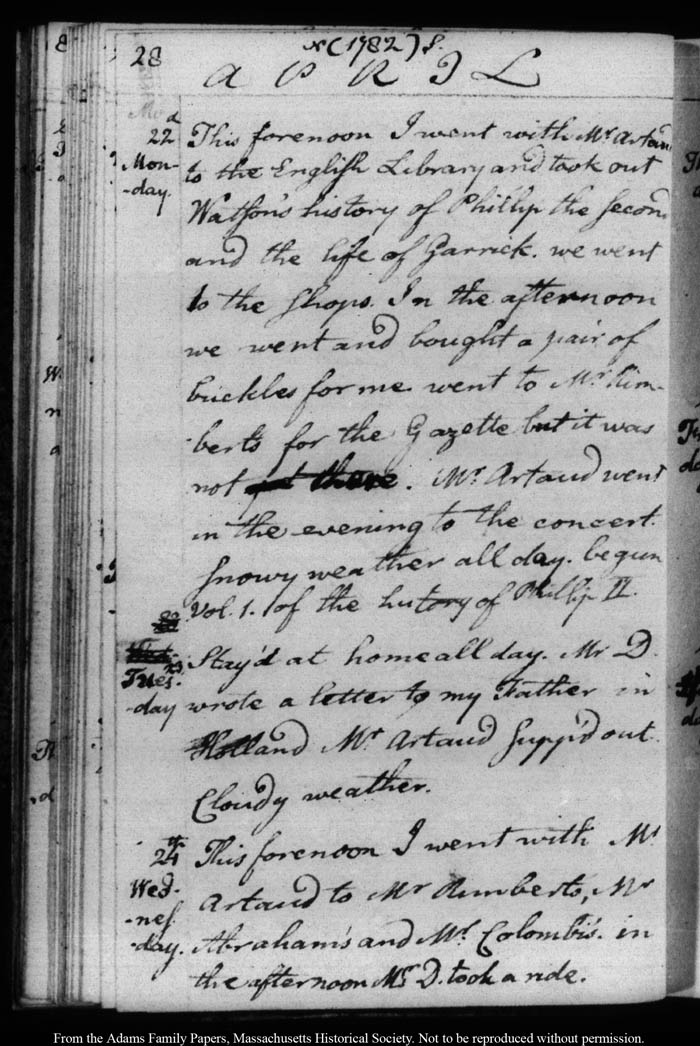 28
x(1782)S.
APRIL
22d
Mon-
-day.
This forenoon I went with Mr Artaud
to the English Library and took out
Watson's history of Phillip the Second
and the life of Garrick. we went
to the shops. In the afternoon
we went and bought a pair of
buckles for me went to Mr Rim-
-berts for the Gazette but it was
not there. Mr Artaud went
in the evening to the concert.
Snowy weather all day. begun
Vol. 1. of the history of Phillip II.
23
Tues-
-day
Stay'd at home all day. Mr D.
wrote a letter to my Father in
Holland Mr Artaud supp'd out
Cloudy weather.
24th
Wed-
-nes-
-day.
This forenoon I went with Mr
Artaud to Mr Rimberts, Mr
Abraham's and Mr Colombi's. in
the afternoon Mr D. took a ride.
From the Adams Family Papers, Massachusetts Historical Society. Not to be reproduced without permission.